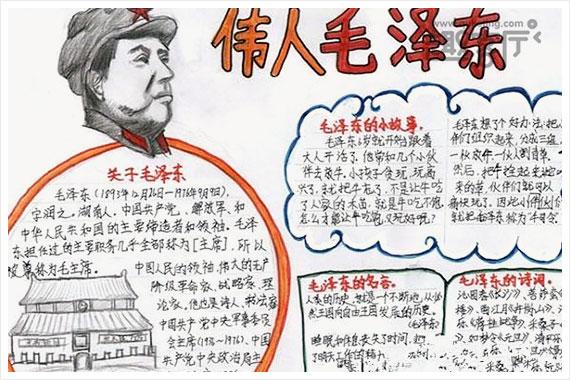 伟人毛泽东
关于毛泽东
毛泽东(1893年12月26日-1976年9月9日),
字润之,湖南人,中国共产党、解放军、和
中华人民共和国的主要缔造者和领袖。毛泽
东担任过的主要职务几乎全部称为[主席],所以
尊称为毛主席。
中国人民的领袖,伟大的无产
阶级革命家、战略家、理
论家。他也是诗人、书法家
中国共产党中央军事委员
会主席(1936-1976)、中国
共产党中央政治局主
毛泽东的小故事。
毛泽东6岁就开始跟着
大人干活了。他常和几个小伙
伴去放牛。小孩子贪玩,玩高
兴了,就把牛忘了。不是让牛吃
了人家的禾苗,就是牛吃不饱,
怎么才能让牛吃饱,又玩好呢?
毛泽东想了个好办法:把小
伙伴们组织起来,分成三组,
一伙放牛,一伙割青草,
然后,把牛拴起来,吃过
来的草,伙伴们就可以
痛快玩了。因此小伙伴们
就把毛泽东称为“牛司令”
毛泽东的名言。
人类的历史,就是一个不断地从必
然王国向自由王国发展的历史。
(毛泽东)
毛泽东的诗词。
沁园春《长沙》、菩萨蛮